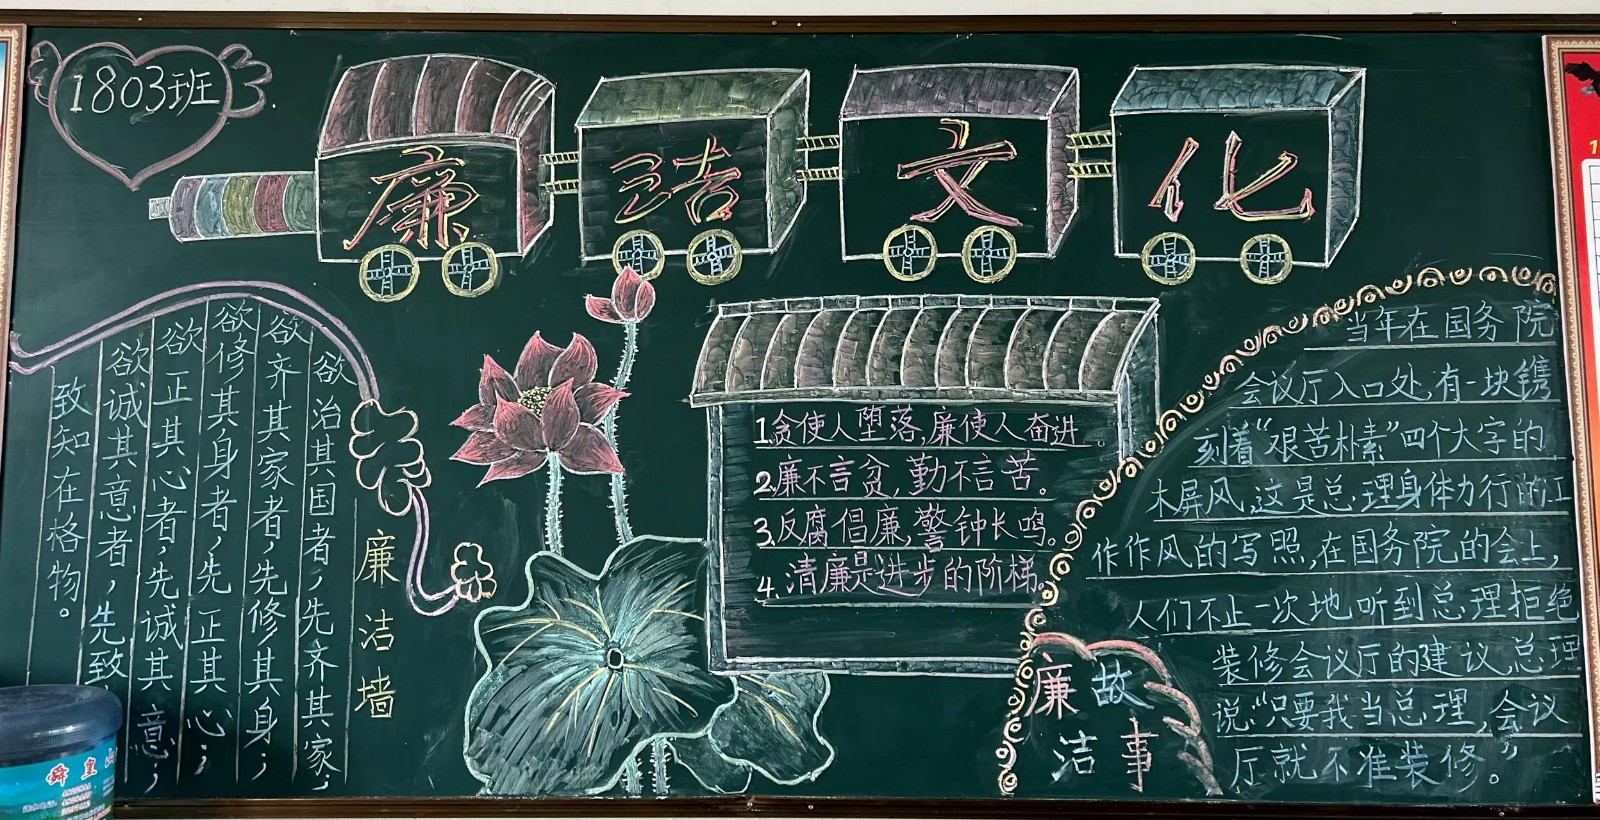 1803班
廉洁文化
欲治其国者,先齐其家;
欲齐其家者,先修其身;
欲修其身者,先正其心;
欲正其心者,先诚其意;
欲诚其意者,先致
致知在格物。
廉洁墙
1.贪使人堕落,廉使人奋进。
2.廉不言贫,勤不言苦。
3.反腐倡廉,警钟长鸣。
4.清廉是进步的阶梯。
当年在国务院
会议厅入口处,有一块镌
刻着“艰苦朴素”四个大字的
木屏风,这是总理身体力行的工
作作风的写照,在国务院的会上,
人们不止一次地听到总理拒绝
装修会议厅的建议,总理
说:“只要我当总理,会议
厅就不准装修。”
廉洁故事
舜皇山